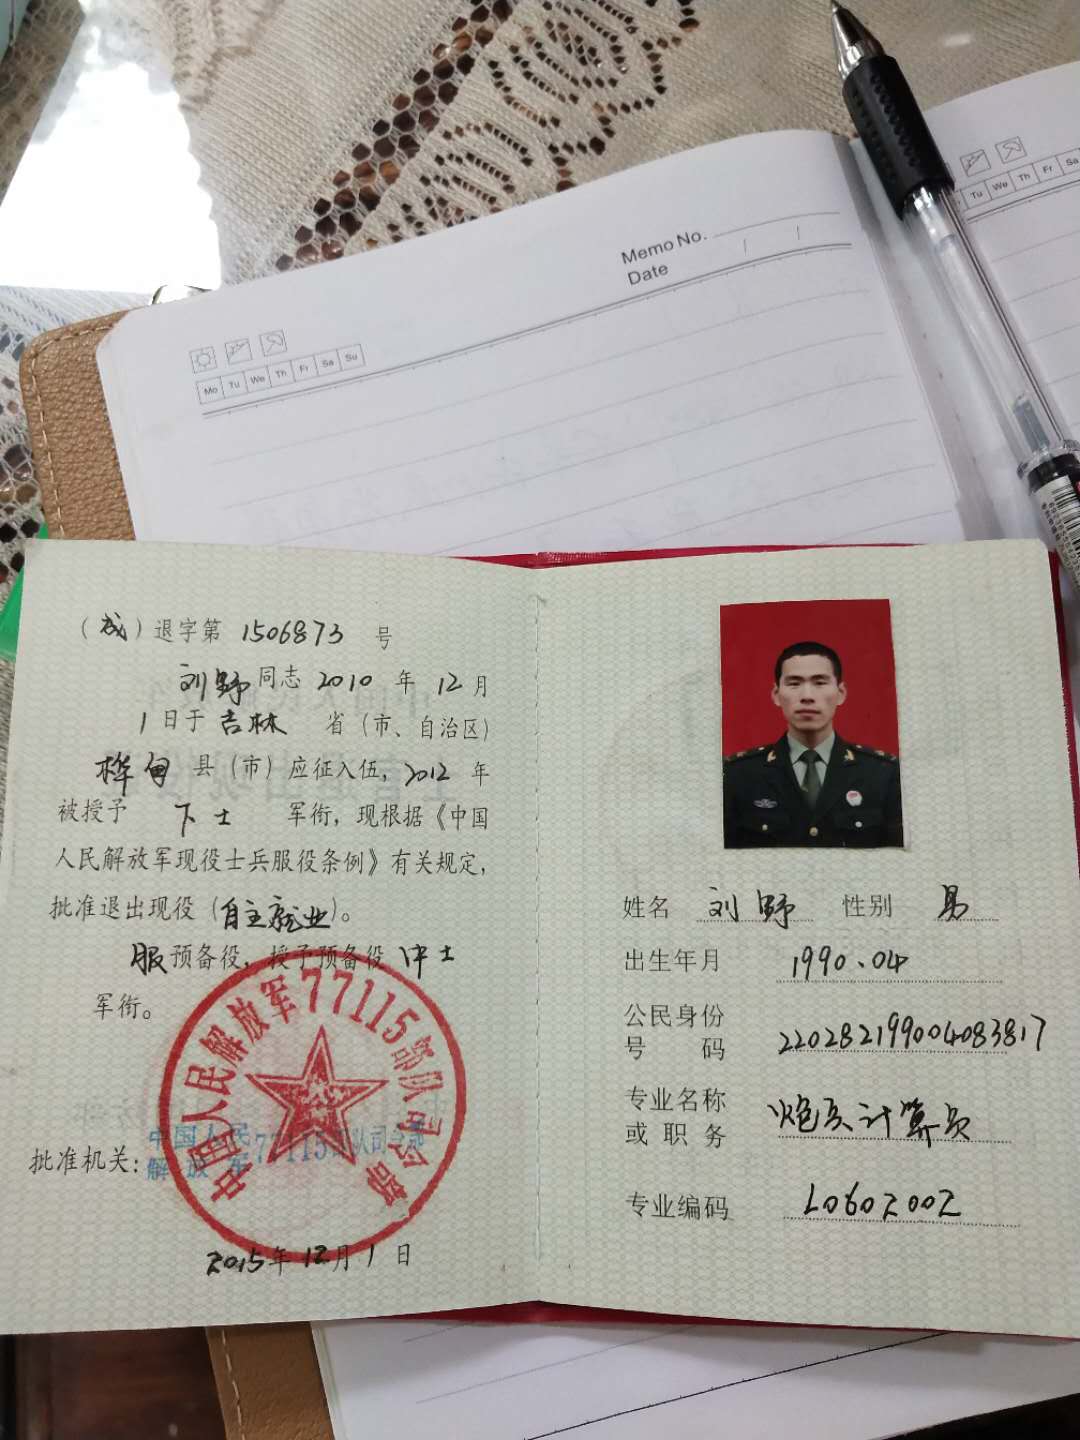 Memo No.
Date
Mo Tu We Th Fr Sa Su
Tu We Th Fr Sa
(成)退字第 1506873 号
刘野同志 2010 年 12 月
1 日于 吉林 省(市、自治区)
桦甸 县(市)应征入伍,2012 年
被授予 下士 军衔,现根据《中国
人民解放军现役士兵服役条例》有关规定,
批准退出现役(自主就业)。
服预备役,授予预备役 中士
军衔。
中国人民解放军77115部队司令部
批准机关:
中国人民
解放军77115部队司令部
2015年 12月 1 日
姓名 刘野 性别 男
出生年月 1990.04
公民身份
号 码 220282199004083817
专业名称
或职务 炮兵计算员
专业编码 L0602002